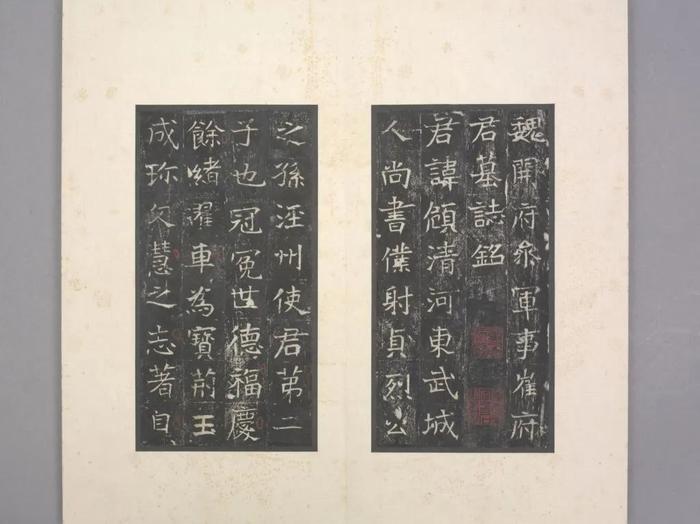 魏開府參軍事崔府
君墓誌銘
君諱頠清河東武城
人尚書僕射貞烈公
之孫涇州使君苐二
子也冠冕世德福慶
餘緒躍車為寶荊玉
成珎文慧之志著自